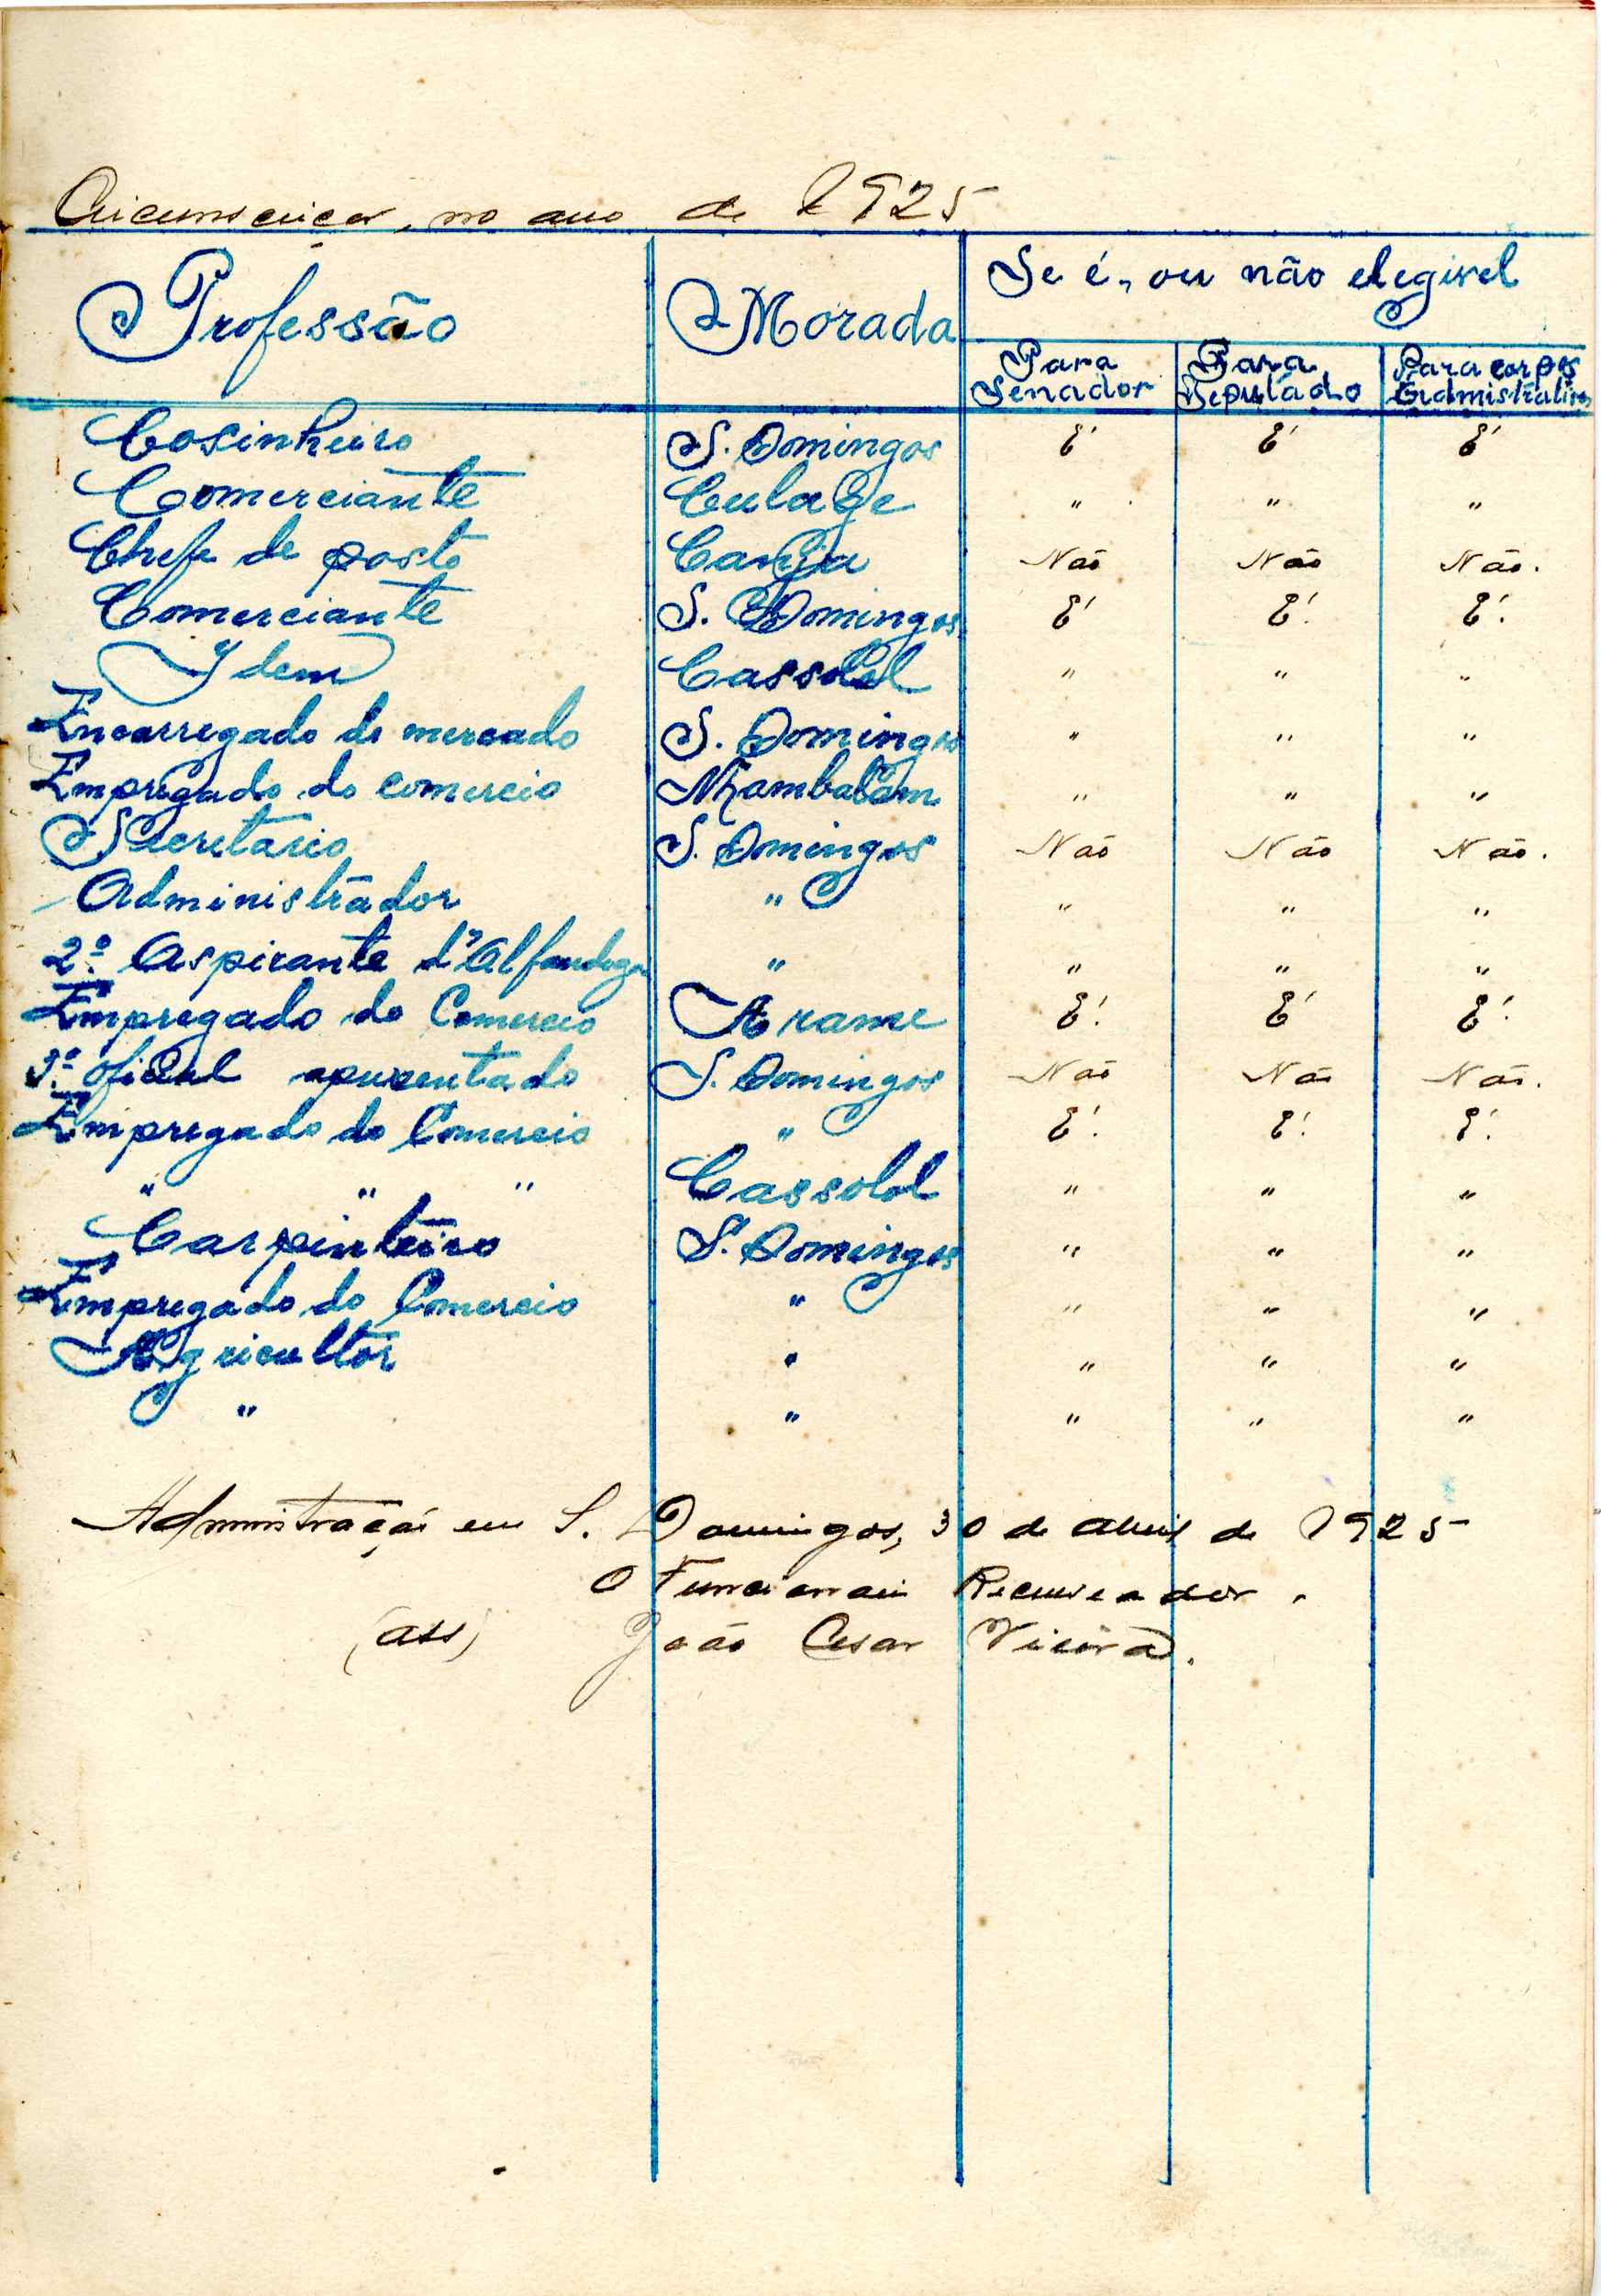 Circunscrição, no ano de 1925
Professão Morada Se é, ou não elegivel
Para Senador Para Deputado Para corpos Admistrativos
Cosinheiro S. Domingos E' E' E'
Comerciante " " "
Chefe de posto Canja Não Não Não.
Comerciante S. Domingos E' E'. E'.
Idem Cassolol " " "
Encarregado do mercado S. Domingos " " "
Empregado do comercio Nhambalam " " "
Secretário S. Domingos Não Não Não.
Administrador " " " "
2º. Aspirante d'Alfandega " " " "
Empregado do Comercio Arame E'. E' E'.
oficial apozentado S. Domingos Não Não Não.
Empregado do Comercio " E'. E'. E'.
" " " Cassolol " " "
Carpinteiro S. Domingos " " "
Empregado do Comercio " " " "
Agricultor " " " "
" " " " "
Administração em S. Domingos, 30 de abril de 1925
O Funcionario Recenseador.
(ass) João Cesar Vieira.